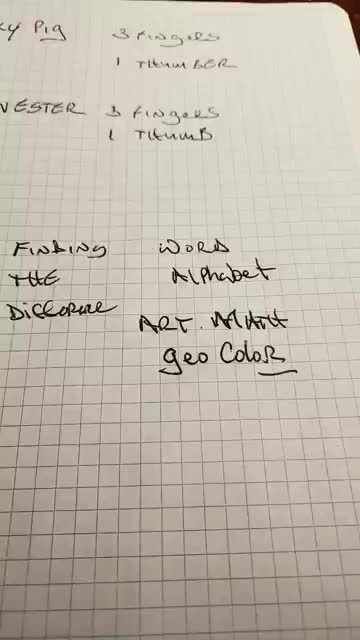 ky Pig 3 Fingers
1 THumBER
VESTER 3 Fingers
1 THumB
FINDING WORD
THE Alphabet
ART. MATH
geo ColoR